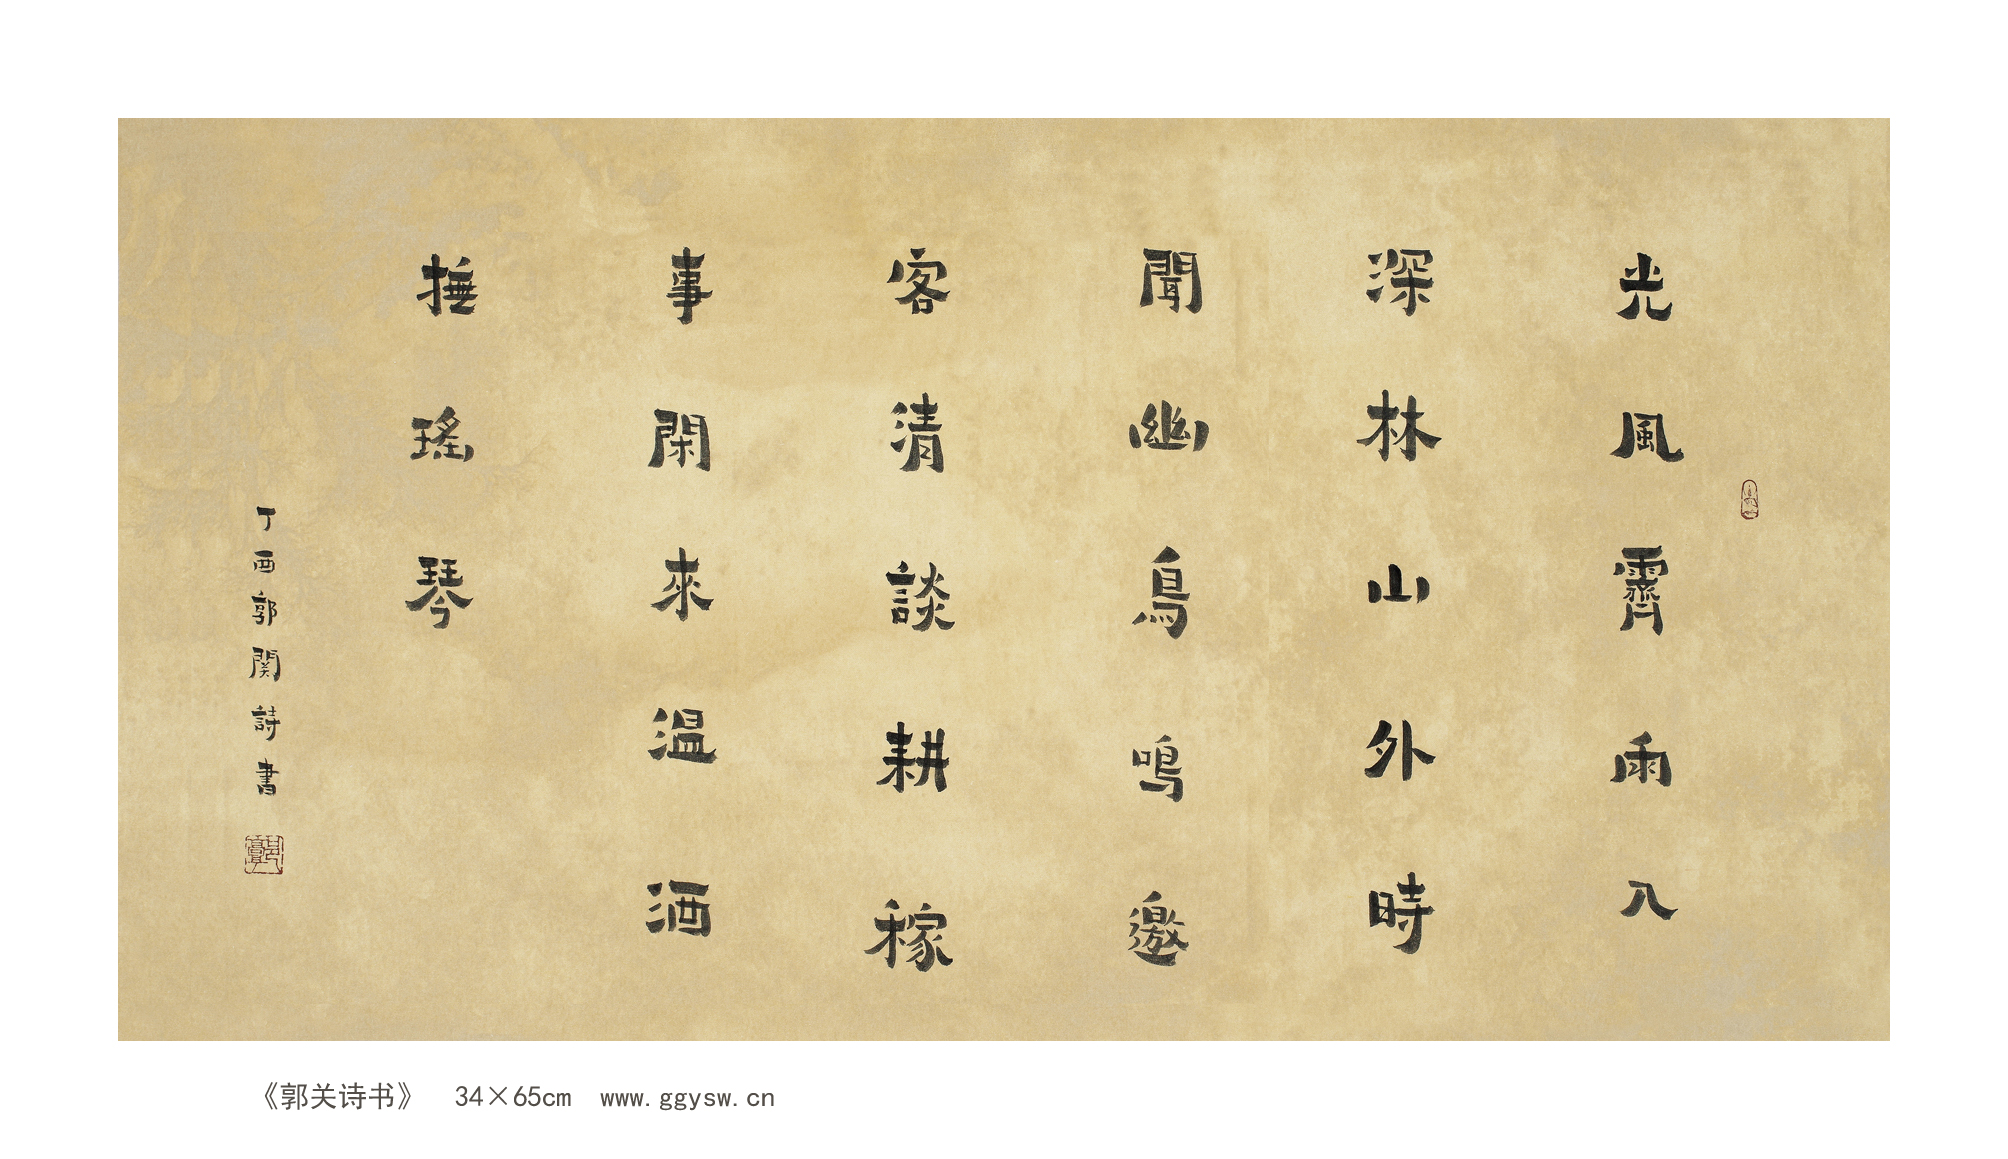 光風霽雨入
深林山外時
聞幽鳥鳴邀
客清談耕稼
事閑來温酒
撫瑤琴
丁酉郭関詩書
《郭关诗书》 34×65cm www.ggysw.cn